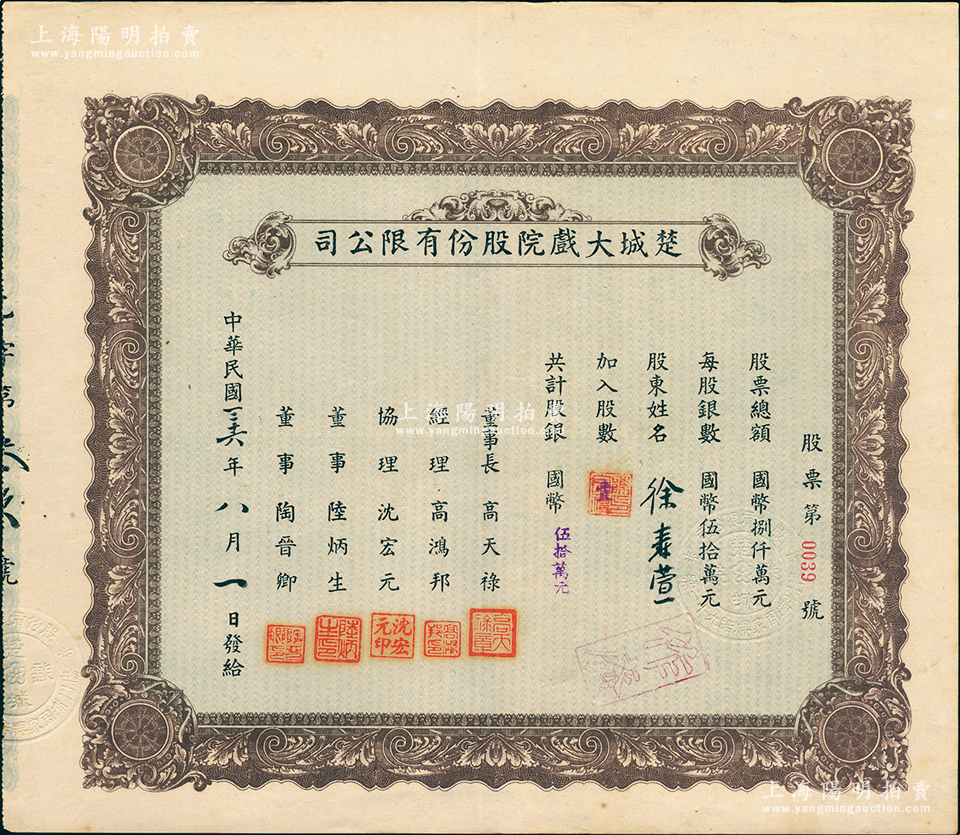 上海陽明拍賣
www.yangmingauction.com
楚城大戲院股份有限公司
股票第 0039 號
股票總額 國幣捌仟萬元
每股銀數 國幣伍拾萬元
股東姓名 徐壽萱
加入股數 壹
共計股銀 國幣 伍拾萬元
董事長 高天祿
經理 高鴻邦
協理 沈宏元
董事 陸炳生
董事 陶晉卿
中華民國三六年八月一日發給
高天祿章
沈宏元印
陸炳生印
上海陽明拍賣
www.yangmingauction.com
號
上海陽明拍賣
www.yangmingauction.com